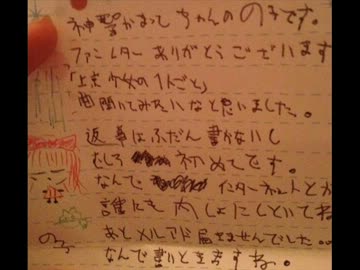 神聖かまってちゃんの のろです。
ファンレターありがとうございます
「上京少女のひとりごと」
曲聞いてみたいなと思いました。
返事はふだん書かないし
むしろ 初めてです。
なんで インターネットとか
誰にも内しょにしといてね
あとメルアド届きませんでした..
なんで書いときますねー。
のろ